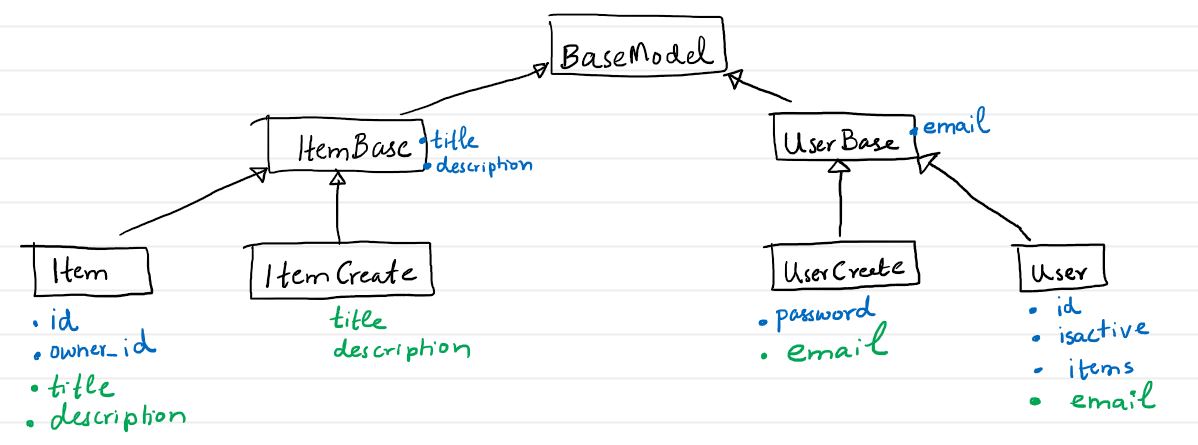 BaseModel
ItemBase
• title
• description
UserBase
• email
Item
• id
• owner_id
• title
• description
ItemCreate
title
description
UserCreate
• password
• email
User
• id
• isactive
• items
• email